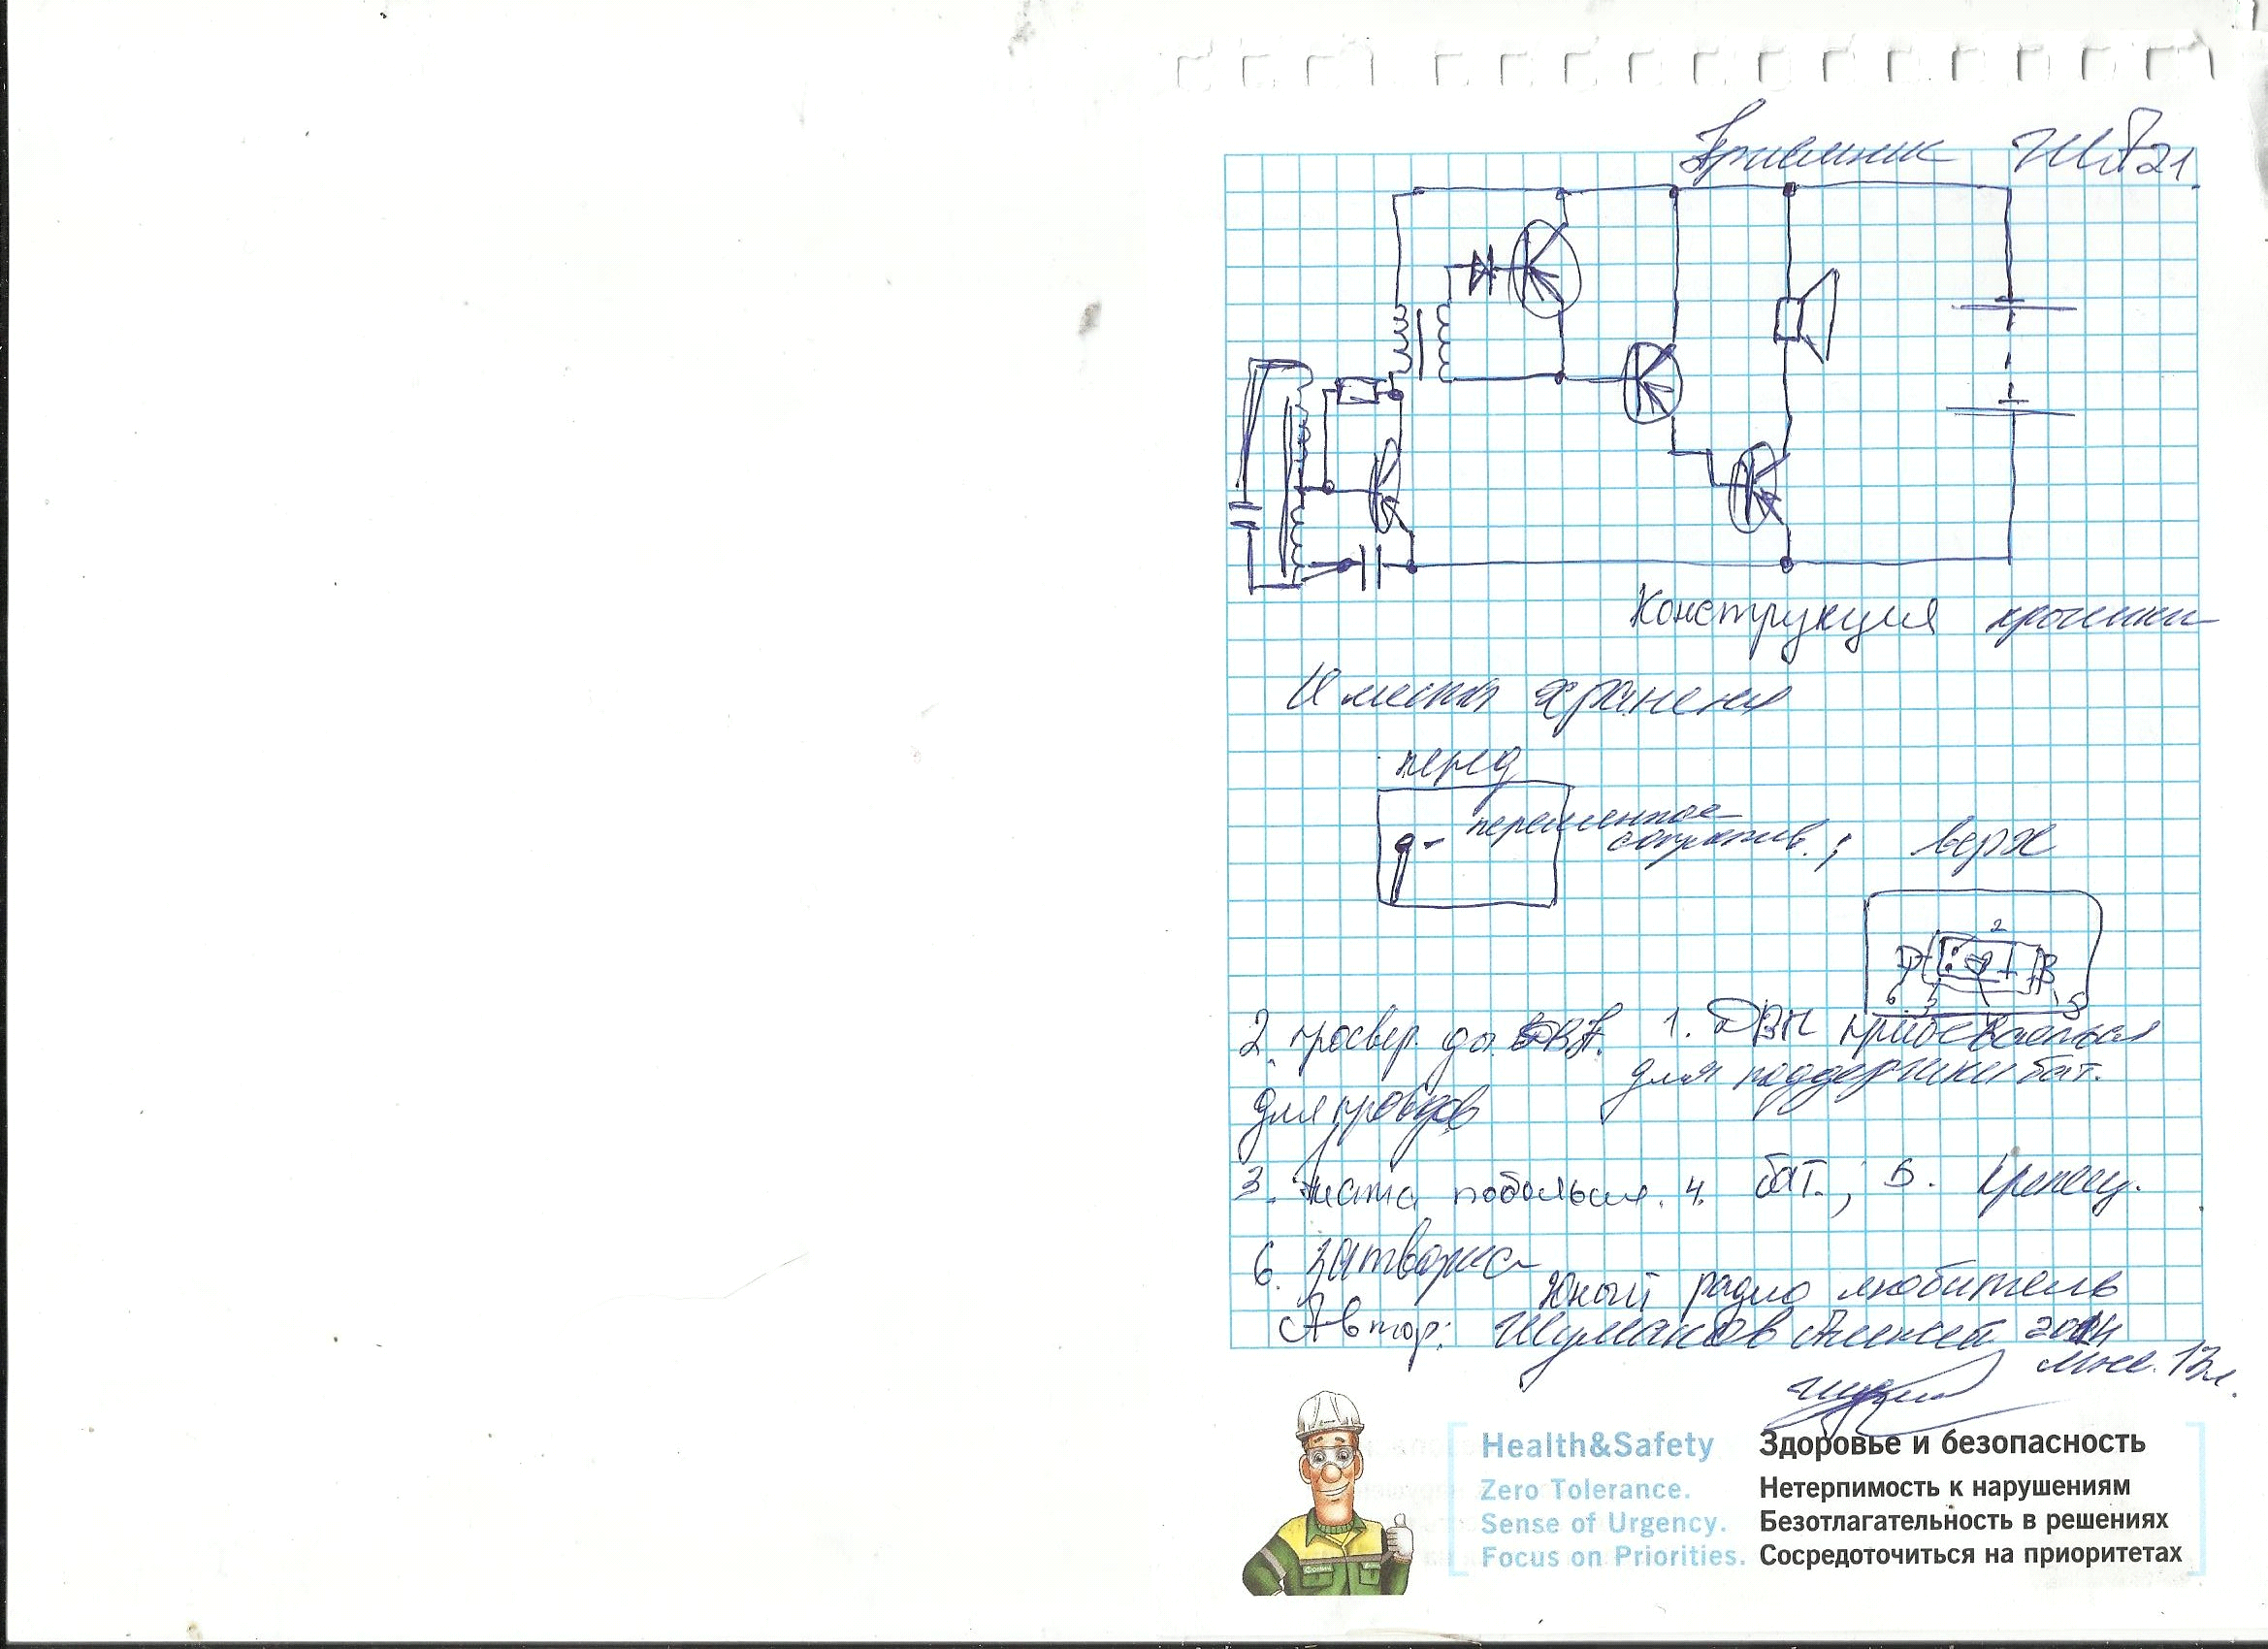 Приёмник ША21.
Конструкция крышки
И места хранения
перед
переменное
сопротив. ;
верх
2
6 3 1 5
2. просвер. ды. 1. ДВП
для поддержки бат.
для проводов
3. 4. бат. ; 5.
6.
Юный радио любитель
Автор: Шумаков Алексей
мне. 13л.
Health&Safety
Здоровье и безопасность
Zero Tolerance.
Нетерпимость к нарушениям
Sense of Urgency.
Безотлагательность в решениях
Focus on Priorities.
Сосредоточиться на приоритетах